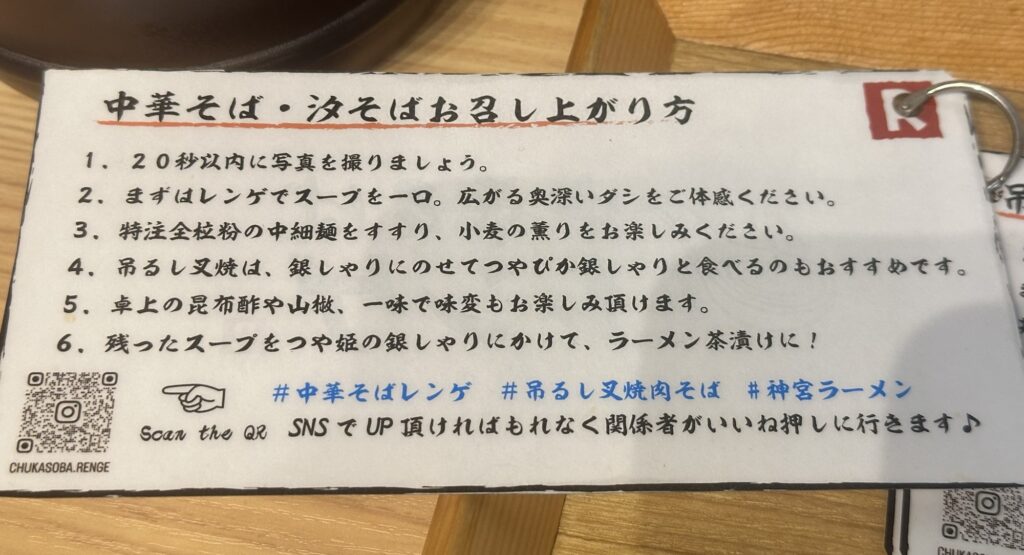 中華そば・汐そばお召し上がり方
R
1．20秒以内に写真を撮りましょう。
2．まずはレンゲでスープを一口。広がる奥深いダシをご体感ください。
3．特注全粒粉の中細麺をすすり、小麦の薫りをお楽しみください。
4．吊るし叉焼は、銀しゃりにのせてつやぴか銀しゃりと食べるのもおすすめです。
5．卓上の昆布酢や山椒、一味で味変もお楽しみ頂けます。
6．残ったスープをつや姫の銀しゃりにかけて、ラーメン茶漬けに！
#中華そばレンゲ #吊るし叉焼肉そば #神宮ラーメン
Scan the QR SNSでUP頂ければもれなく関係者がいいね押しに行きます♪
CHUKASOBA.RENGE
吊
CHUKASO